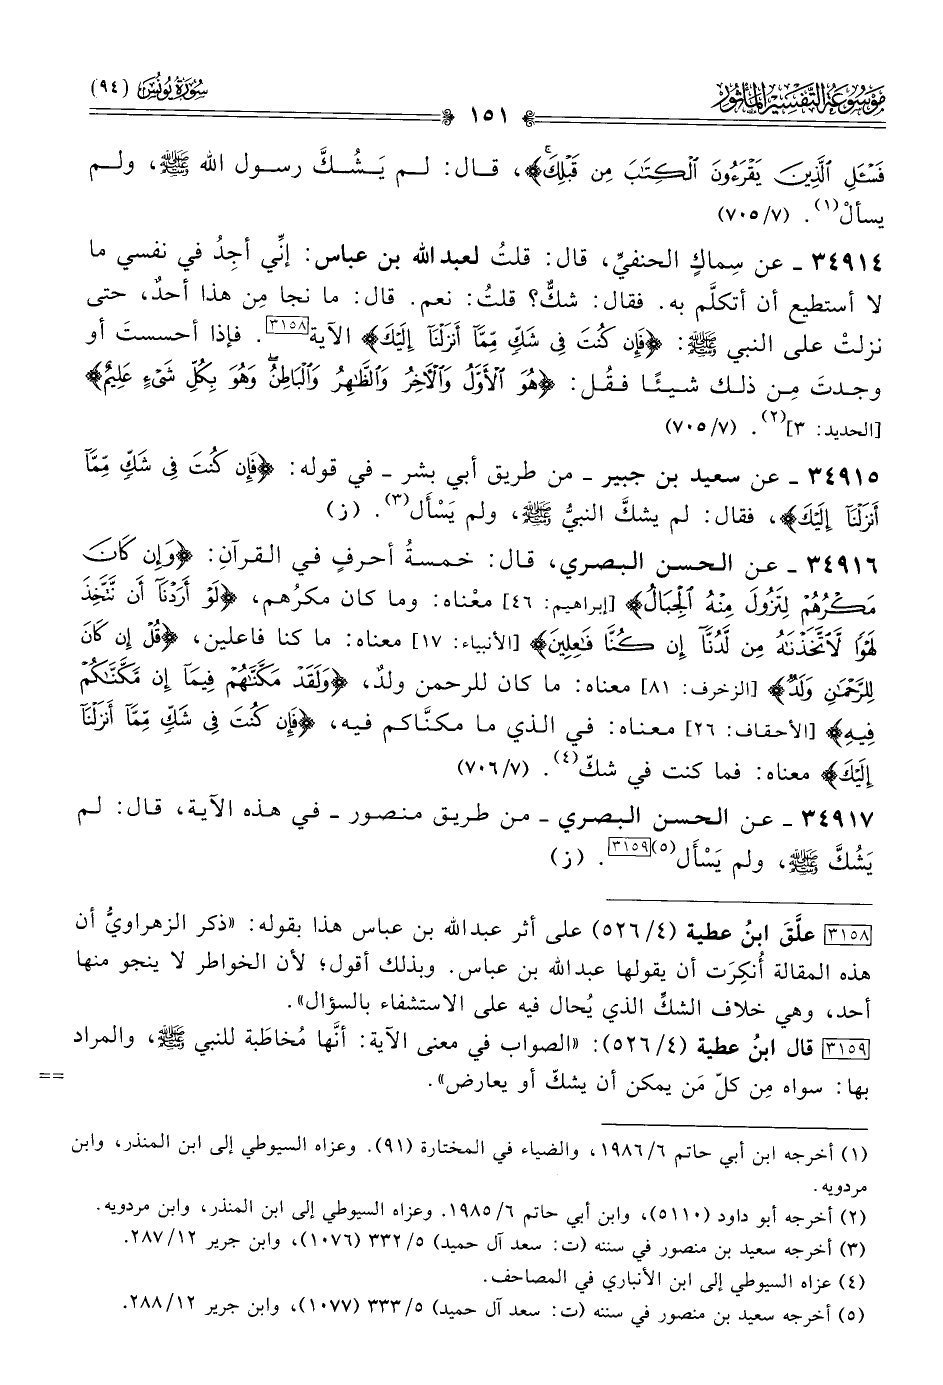 موسوعة التفسير المأثور
١٥١
سورة يونس (٩٤)
فَسْـَٔلِ ٱلَّذِينَ يَقْرَءُونَ ٱلْكِتَـٰبَ مِن قَبْلِكَۚ﴾، قال: لم يَشُكَّ رسول الله ﷺ، ولم
يسألْ(١). (٧٠٥/٧)
٣٤٩١٤ ـ عن سِماكٍ الحنفيِّ، قال: قلتُ لعبد الله بن عباس: إنِّي أجِدُ في نفسي ما
لا أستطيع أن أتكلَّم به. فقال: شكٌّ؟ قلتُ: نعم. قال: ما نجا مِن هذا أحدٌ، حتى
نزلتْ على النبي ﷺ: ﴿فَإِن كُنتَ فِى شَكٍّ مِّمَّآ أَنزَلْنَآ إِلَيْكَ﴾ الآية[٣١٥٨]. فإذا أحسستَ أو
وجدتَ مِن ذلك شيئًا فقُل: ﴿هُوَ ٱلْأَوَّلُ وَٱلْـَٔاخِرُ وَٱلظَّـٰهِرُ وَٱلْبَاطِنُۖ وَهُوَ بِكُلِّ شَىْءٍ عَلِيمٌ﴾
[الحديد: ٣](٢). (٧٠٥/٧)
٣٤٩١٥ ـ عن سعيد بن جبير ـ من طريق أبي بشر ـ في قوله: ﴿فَإِن كُنتَ فِى شَكٍّ مِّمَّآ
أَنزَلْنَآ إِلَيْكَ﴾، فقال: لم يشكَّ النبيُّ ﷺ، ولم يَسْأَل(٣). (ز)
٣٤٩١٦ ـ عن الحسن البصري، قال: خمسةُ أحرفٍ في القرآنِ: ﴿وَإِن كَانَ
مَكْرُهُمْ لِتَزُولَ مِنْهُ ٱلْجِبَالُ﴾ [إبراهيم: ٤٦] معْناه: وما كان مكرُهم، ﴿لَوْ أَرَدْنَآ أَن نَّتَّخِذَ
لَهْوًا لَّٱتَّخَذْنَـٰهُ مِن لَّدُنَّآ إِن كُنَّا فَـٰعِلِينَ﴾ [الأنبياء: ١٧] معناه: ما كنا فاعلين، ﴿قُلْ إِن كَانَ
لِلرَّحْمَـٰنِ وَلَدٌ﴾ [الزخرف: ٨١] معناه: ما كان للرحمن ولدٌ، ﴿وَلَقَدْ مَكَّنَّـٰهُمْ فِيمَآ إِن مَّكَّنَّـٰكُمْ
فِيهِ﴾ [الأحقاف: ٢٦] معناه: في الذي ما مكنَّاكم فيه، ﴿فَإِن كُنتَ فِى شَكٍّ مِّمَّآ أَنزَلْنَآ
إِلَيْكَ﴾ معناه: فما كنت في شكّ(٤). (٧٠٦/٧)
٣٤٩١٧ ـ عن الحسن البصري ـ من طريق منصور ـ في هذه الآية، قال: لم
يَشُكَّ ﷺ، ولم يَسْأَل(٥)[٣١٥٩]. (ز)
[٣١٥٨] علَّقَ ابنُ عطية (٥٢٦/٤) على أثر عبدالله بن عباس هذا بقوله: «ذكر الزهراويُّ أن
هذه المقالة أُنكِرَت أن يقولها عبدالله بن عباس. وبذلك أقول؛ لأن الخواطر لا ينجو منها
أحد، وهي خلاف الشكِّ الذي يُحال فيه على الاستشفاء بالسؤال».
[٣١٥٩] قال ابنُ عطية (٥٢٦/٤): «الصواب في معنى الآية: أنَّها مُخاطَبة للنبي ﷺ، والمراد
بها: سواه مِن كلّ مَن يمكن أن يشكّ أو يعارض».
==
(١) أخرجه ابن أبي حاتم ١٩٨٦/٦، والضياء في المختارة (٩١). وعزاه السيوطي إلى ابن المنذر، وابن
مردويه.
(٢) أخرجه أبو داود (٥١١٠)، وابن أبي حاتم ١٩٨٥/٦. وعزاه السيوطي إلى ابن المنذر، وابن مردويه.
(٣) أخرجه سعيد بن منصور في سننه (ت: سعد آل حميد) ٣٣٢/٥ (١٠٧٦)، وابن جرير ٢٨٧/١٢.
(٤) عزاه السيوطي إلى ابن الأنباري في المصاحف.
(٥) أخرجه سعيد بن منصور في سننه (ت: سعد آل حميد) ٣٣٣/٥ (١٠٧٧)، وابن جرير ٢٨٨/١٢.